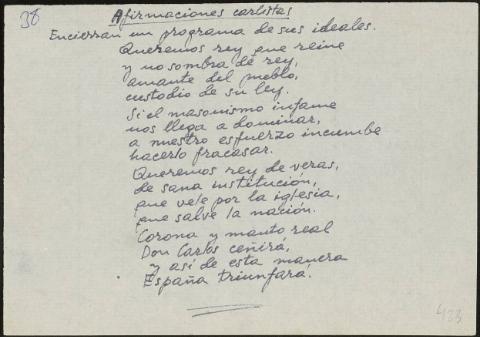 38
Afirmaciones carlistas
Encierran un programa de sus ideales.
Queremos rey que reine
y no sombra de rey,
amante del pueblo,
custodio de su ley.
Si el masonismo infame
nos llega a dominar,
a nuestro esfuerzo incumbe
hacerlo fracasar.
Queremos rey de veras,
de sana institución,
que vele por la iglesia,
que salve la nación.
Corona y manto real
Don Carlos ceñirá,
y así de esta manera
España triunfará.
433